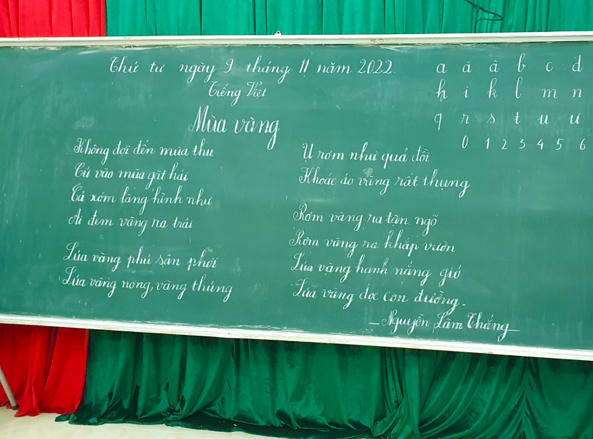 Thứ tư ngày 9 tháng 11 năm 2022
Tiếng Việt
Mùa vàng
Không đợi đến mùa thu
Cứ vào mùa gặt hái
Cả xóm làng hình như
Ai đem vàng ra trải
Lúa vàng phủ sân phơi
Lúa vàng nong, vàng thúng
Ụ rơm như quả đồi
Khoác áo vàng rất thụng
Rơm vàng ra tận ngõ
Rơm vàng ra khắp vườn
Lúa vàng hanh nắng gió
Lúa vàng dọc con đường.
- Nguyễn Lãm Thắng -
a ă â b c d
h i k l m n
q r s t u ư
0 1 2 3 4 5 6